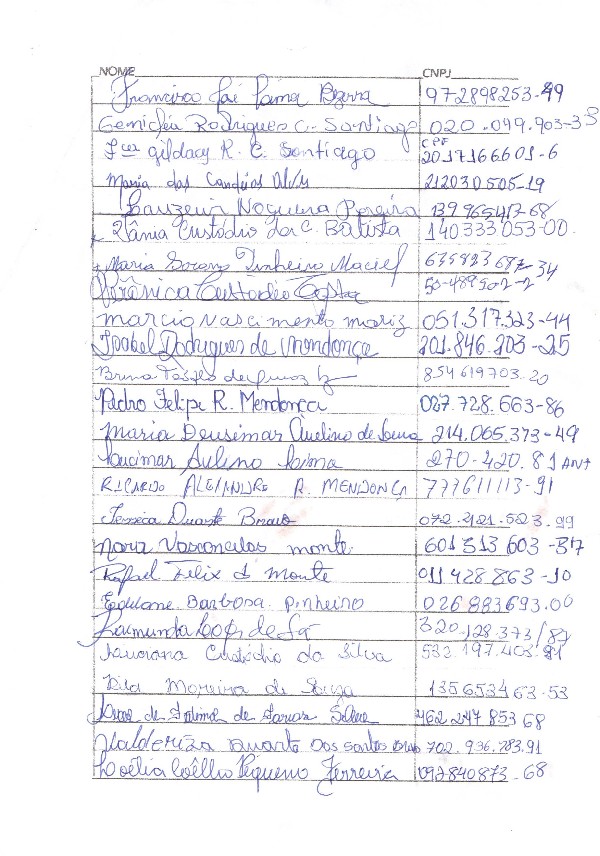 NOME CNPJ
Francisco José Lima Bezerra 972898253-49
Rodrigues C. Santiago 020.099.903-33
Fco gildacy R. C. Santiago CPF 2017166601-6
Maria das Candeias 212030505-19
Nogueira Pereira 139965417-68
Vânia Custódio da C. Batista 140333053-00.
Maria Pinheiro Maciel 635823687-34
Verônica Custodio
marcio nascimento mariz 051.317.323-44
Isabel Rodrigues de Mendonça 201.846.203-25
Bruno 854619703-20
Pedro Felipe R. Mendonça 027.728.663-86
Maria Deusimar de 214.065.373-49
Lucimar Lima 270-420.81 ANT
RICARDO ALEXANDRE R. MENDONÇA 777611113-91
Duarte 072.421.523.99
Vasconcelos monte 601313603-37
Rafael Felix d Monte 011428.863-10
Barbosa Pinheiro 026883693.00
Raimunda de Sá 320.128.373/87
Custódio da Silva 532.197.403-91
Rita Moreira de Souza 135653463-53
de Fatima de Silva 462.247.853 68
Valderiza Duarte dos Santos 702.936.783.91
Coêlho Pequeno Ferreira 092840873-68